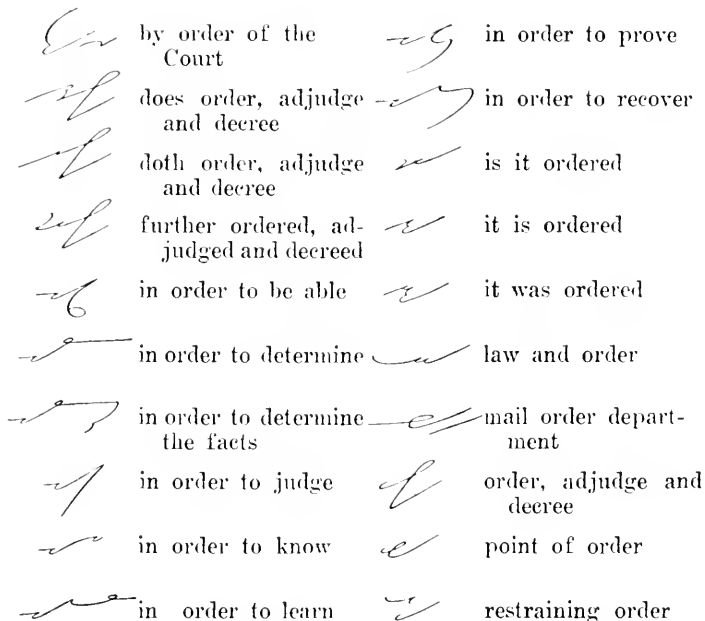 by order of the
Court
does order, adjudge
and decree
doth order, adjudge
and decree
further ordered, ad-
judged and decreed
in order to be able
in order to determine
in order to determine
the facts
in order to judge
in order to know
in order to learn
in order to prove
in order to recover
is it ordered
it is ordered
it was ordered
law and order
mail order depart-
ment
order, adjudge and
decree
point of order
restraining order